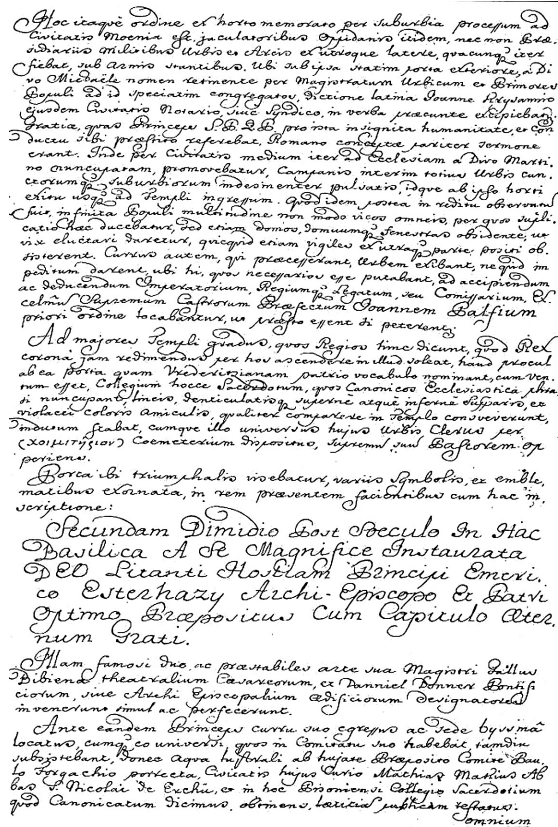 Hoc itaque ordine ex horto memorato per suburbia processum ad
Civitatis Moenia est, jaculatoribus Oppidanis itidem, nec non Præ-
sidiariis Militibus Urbis et Arcis ex utroque latere, quacunq; iter
fiebat, sub Armis stantibus. Ubi sub ipsa statim porta exteriore, a Di-
vo Michaële nomen retinente per Magistratum Urbicum et Primores
Populi ad id speciatim congregatos, dictione latina Joanne
ejusdem Civitatis Notario, sive Syndico, in verba præeunte excipieban
Gratiæ, quas Princeps S.P.Q.P. pro ista insignita humanitate, et con
ductu sibi præstito referebat, Romano conceptæ pariter sermone
erant. Inde per Civitatis medium iter ad Ecclesiam a Divo Marti-
no nuncupatam, promovebatur, Campanis interim totius Urbis cun-
ctorumq; suburbiorum indesinenter pulsatis, idque ab ipso horti
exitu usq; ad Templi ingressum. Quod idem postea in reditu observatu
fuit, infinita Populi multitudine non modo vicos omneis, per quos suppli-
catio hæc ducebatur, sed etiam domos, domuumq; fenestras obsidente, ut
vix eluctari daretur, quicquid etiam vigiles ex utraq; parte positi ob-
sisterent. Currus autem, qui præcesserant, Urbem exibant, ne quid im
pedim darent, ubi hi, quos necessarios esse putabant, ad accipiendum
ac deducendum Imperatorium, Regiumq; Legatum, seu Comissarium, Ex
celmu Supremum Castrorum Præfectum Joannem Palfium
priori ordine locabantur, ut præsto essent si peterent;
Ad majores Templi gradus, quos Regios hinc dicunt, quod Rex
corona jam redimendus per hos ascendere in illud soleat, haud procul
ab ea porta quam Vrederizianam patrio vocabulo nominant, cum ven-
tum esset, Collegium hocce Sacerdotum, quos Canonicos Ecclesiastica phra-
si nuncupant, linteis, denticulatisq; superne atque inferne supparis, et
violacei coloris Amiculis, qualiter comparere in Templo consueverunt,
indutum stabat, cumque illo universus hujus Urbis Clerus per
Coemeterium dispositus, Supremum suum Pastorem op
periens.
Porta ibi triumphalis visebatur, variis Symbolis, et emble-
matibus exornata, in rem præsentem facientibus cum hac in-
scriptione:
Secundam Dimidio Post Soeculo In Hac
Basilica A Se Magnifice Instaurata
DEO Litanti Hostiam Principi Emeri-
co Esterhazy Archi-Episcopo Et Patri
Optimo Præpositus Cum Capitulo Æter-
num Grati.
Illam famosi duo, ac præstabiles arte sua Magistri Gallus
Bibiena theatralium Cæsareorum, et Danniel Donner Pontifi
ciorum, sive Archi Episcopalium Ædificiorum Designatores
invenerunt simul ac perfecerunt.
Ante eandem Princeps curru suo egressus ac sede byssinâ
locatus, cumq; eo universi, quos in Comitatu suo habebat, tamdiu
subsistebant, donec aqva lustrali ab hujate Præposito Comite Pau-
lo Forgachio porrecta, Civitatis hujus Curio Mathias Marius Ab
bas S. Nicolai de Erchii, et in hoc Posoniensi Collegio Sacerdotium
quod Canonicatum dicimus, obtinens, lætitiâ publicam testatus.
omnium